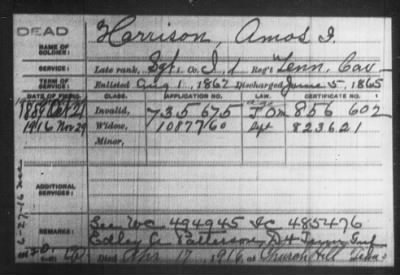 DEAD
NAME OF SOLDIER: Harrison, Amos I.
SERVICE: Late rank, Sgt, Co. I, 1 Reg't Tenn. Cav
TERM OF SERVICE: Enlisted Aug 1, 1862 Discharged June 5, 1865
DATE OF FILING. CLASS. APPLICATION NO. LAW. CERTIFICATE NO.
1889 Oct 21 Invalid, 735675 856602
1916 Nov 29 Widow, 1087760 Apt 823621
Minor,
ADDITIONAL SERVICES:
6-27-16
REMARKS: See WC 494945 IC 485476
Edley A. Patterson, D 4 Tenn. Inf
Died Apr 17, 1916, at Church Hill Tenn